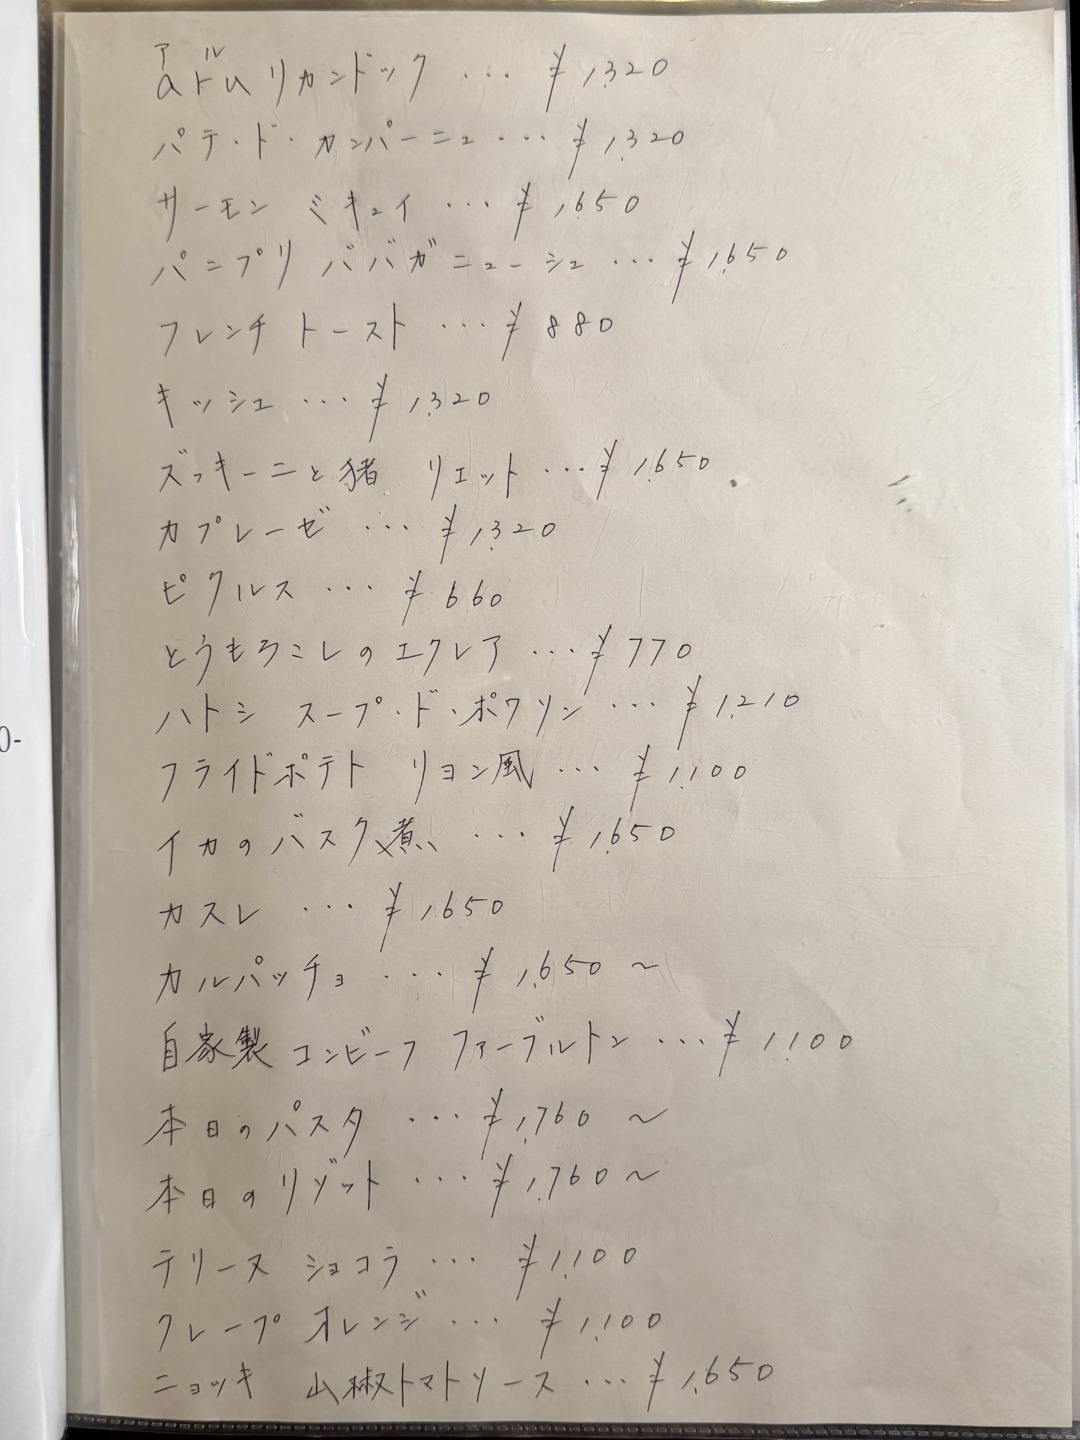 アル
aru リカンドック ... ¥1,320
パテ・ド・カンパーニュ ... ¥1,320
サーモン ミキュイ ... ¥1,650
パニプリ ババガニューシュ ... ¥1,650
フレンチトースト ... ¥880
キッシュ ... ¥1,320
ズッキーニと猪 リエット ... ¥1,650
カプレーゼ ... ¥1,320
ピクルス ... ¥660
とうもろこしのエクレア ... ¥770
ハトシ スープ・ド・ポワソン ... ¥1,210
フライドポテト リヨン風 ... ¥1,100
イカのバスク煮 ... ¥1,650
カスレ ... ¥1,650
カルパッチョ ... ¥1,650〜
自家製コンビーフ ファーブルトン ... ¥1,100
本日のパスタ ... ¥1,760〜
本日のリゾット ... ¥1,760〜
テリーヌ ショコラ ... ¥1,100
クレープ オレンジ ... ¥1,100
ニョッキ 山椒トマトソース ... ¥1,650
0-